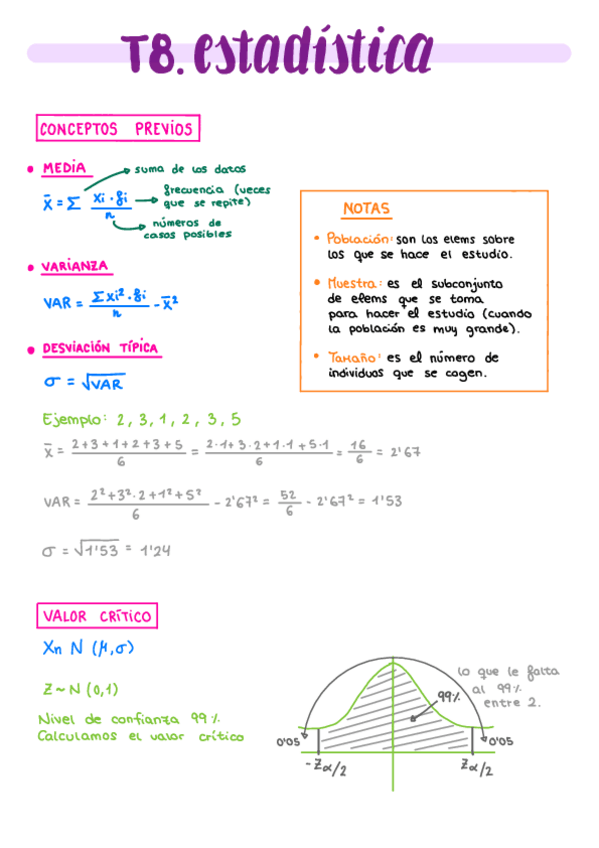 T8. estadística
CONCEPTOS PREVIOS
• MEDIA
suma de los datos
x̄ = Σ xi · fi / n
frecuencia (veces
que se repite)
números de
casos posibles
• VARIANZA
VAR = Σxi² · fi / n - x̄²
• DESVIACIÓN TÍPICA
σ = √VAR
NOTAS
• Población: son los elems sobre
los que se hace el estudio.
• Muestra: es el subconjunto
de elems que se toma
para hacer el estudio (cuando
la población es muy grande).
• Tamaño: es el número de
individuos que se cogen.
Ejemplo: 2, 3, 1, 2, 3, 5
x̄ = 2+3+1+2+3+5 / 6 = 2·1+3·2+1·1+5·1 / 6 = 16 / 6 = 2'67
VAR = 2²+3²·2+1²+5² / 6 - 2'67² = 52 / 6 - 2'67² = 1'53
σ = √1'53 = 1'24
VALOR CRÍTICO
Xn N (μ,σ)
Z ~ N (0,1)
Nivel de confianza 99%
Calculamos el valor crítico
lo que le falta
al 99%
entre 2.
99%
0'05
0'05
-Zα/2
Zα/2